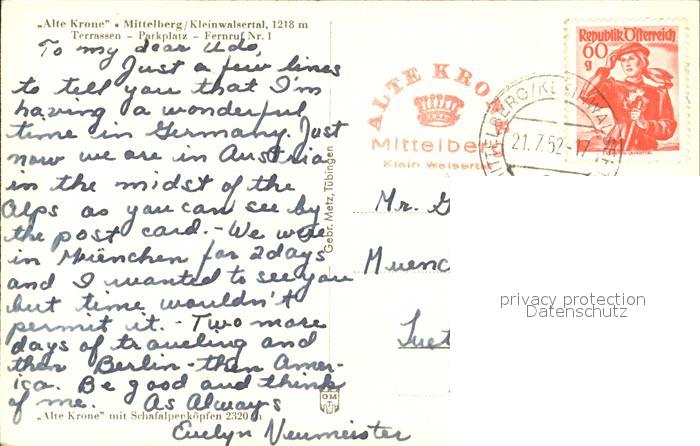 „Alte Krone" • Mittelberg/Kleinwalsertal, 1218 m
Terrassen – Parkplatz – Fernruf Nr. 1
To my dear Udo,
Just a few lines
to tell you that I'm
having a wonderful
time in Germany. Just
now we are in Austria
in the midst of the
Alps as you can see by
the post card. - We were
in Müenchen for 2 days
and I wanted to see you
but time wouldn't
permit it. - Two more
days of traveling and
then Berlin - then Amer-
ica. Be good and think
of me. As Always
Evelyn Neumeister
„Alte Krone" mit Schafalpenköpfen 2320 m
Gebr. Metz, Tübingen
GMT
ALTE KRO
Mittelbe
Klein Walserta
21.7.52-17
Republik Österreich
60
g
Mr. G
Muenc
privacy protection
Datenschutz